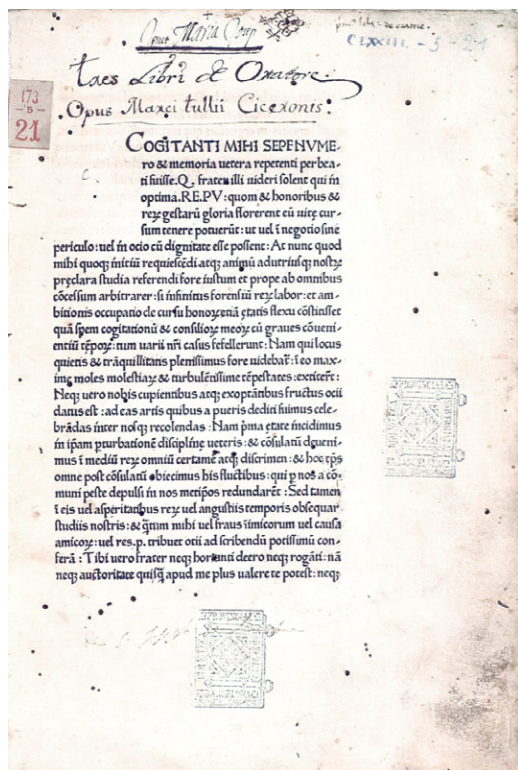 CLXXIII - 5 - 21
Tres Libri de Oratore.
173
- 5 -
21
Opus Marci tullii Ciceronis:
COGITANTI MIHI SEPENVME-
ro & memoria uetera repetenti perbea-
ti fuisse. Q. frater illi uideri solent qui in
optima. RE. PV: quom & honoribus &
reꝝ gestarū gloria florerent eū uitę cur-
sum tenere potuerūt: ut uel ī negotio sine
periculo: uel in ocio cū dignitate esse possent: At nunc quod
mihi quoqꝫ initiū requiescēdi atqꝫ animū ad utriusqꝫ nostꝝ
pręclara studia referendi fore iustum et prope ab omnibus
cōcessum arbitrarer: si infinitus forensiū reꝝ labor: et am-
bitionis occupatio de cursu honoꝝ etiā ętatis flexu cōstitisset
quā spem cogitationū & consilioꝝ meoꝝ cū graues cōueni-
entiū tēpoꝝ: tum uarii nrī casus fefellerunt: Nam qui locus
quietis & trāquillitatis plenissimus fore uidebaꝶ: ī eo max-
imę moles molestiaꝝ & turbulētissime tēpestates extiterūt:
Neqꝫ uero nobis cupientibus atqꝫ exoptātibus fructus ocii
datus est: ad eas artis quibus a pueris dediti fuimus cele-
brādas inter nosqꝫ recolendas: Nam pʼma ętate incidimus
in ipam ꝑturbationē disciplinę ueteris: & cōsulatū deueni-
mus ī mediū reꝝ omniū certamē atqꝫ discrimen: & hoc tps
omne post cōsulatū obiecimus his fluctibus: qui ꝑ nos a cō-
muni peste depulsi in nos metipos redundarēt: Sed tamen
ī eis uel asperitatibus reꝝ uel angustiis temporis obsequar
studiis nostris: & qʼtum mihi uel fraus īimicorum uel causa
amicoꝝ: uel res. p. tribuet otii ad scribendū potissimū con-
ferā: Tibi uero frater neqꝫ hortanti deero neqꝫ rogāti: nā
neqꝫ auctoritate quisqʼ apud me plus ualere te potest: neqꝫ